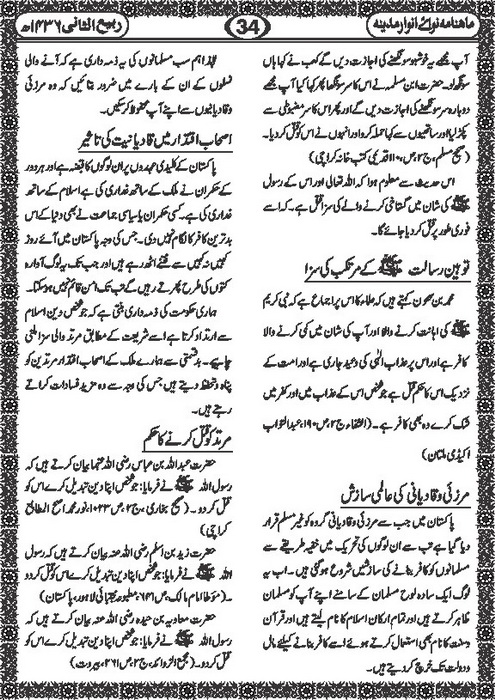 ماہنامہ نوائے انوار مدینہ
34
ربیع الثانی ۱۴۳۶ھ
آپ مجھے یہ خوشبو سونگھنے کی اجازت دیں گے کعب نے کہا ہاں
سونگھ لو۔ حضرت ابن مسلمہ نے اس کا سر سونگھا پھر کہا کیا آپ مجھے
دوبارہ سر سونگھنے کی اجازت دیں گے اور پھر اس کا سر مضبوطی سے
پکڑ لیا اور ساتھیوں سے کہا حملہ کرو اور انہوں نے اس کو قتل کر دیا۔
(صحیح مسلم، ج۲، ص۱۱۰ قدیمی کتب خانہ کراچی)
اس حدیث سے معلوم ہوا کہ اللہ تعالی اور اس کے رسول
ﷺ کی شان میں گستاخی کرنے والے کی سزا قتل ہے۔ کہ اسے
فوری طور پر قتل کر دیا جائے گا۔
توہین رسالت ﷺ کے مرتکب کی سزا
محمد بن سحنون کہتے ہیں کہ علماء کا اس پر اجماع ہے کہ نبی کریم
ﷺ کی اہانت کرنے والا اور آپ کی شان میں کمی کرنے والا
کافر ہے اور اس پر عذاب الٰہی کی وعید جاری ہے اور امت کے
نزدیک اس کا حکم قتل ہے جو شخص اس کے عذاب میں اور کفر میں
شک کرے وہ بھی کافر ہے۔ (الشفاء، ج۲، ص۱۹۰، عبدالتواب
اکیڈی ملتان)
مرزئی و قادیانی کی عالمی سازش
پاکستان میں جب سے مرزئی و قادیانی گروہ کو غیر مسلم قرار
دیا گیا ہے تب سے ان لوگوں کی تحریک میں خفیہ طریقے سے
مسلمانوں کو کافر بنانے کی سازشیں شروع ہو گئی ہیں۔ اب یہ
لوگ ایک سادہ لوح مسلمان کے سامنے اپنے آپ کو مسلمان
ظاہر کرتے ہیں اور تمام ارکان اسلام کا نام لیتے ہیں اور قرآن
وسنت کا نام بھی استعمال کرتے ہوئے اسے کافر بنانے کیلئے مال
و دولت تک خرچ کر دیتے ہیں۔
لہٰذا ہم سب مسلمانوں کی یہ ذمہ داری ہے کہ آنے والی
نسلوں کے ان کے بارے میں ضرور بتائیں کہ وہ مرزئی
وقادیانیوں سے اپنے آپ محفوظ کر سکیں۔
اصحاب اقتدار میں قادیانیت کی تاثیر
پاکستان کے کلیدی عہدوں پر ان لوگوں کا قبضہ ہے اور ہر دور
کے حکمران نے ملک کے ساتھ غداری کی ہے اسلام کے ساتھ
غداری کی ہے۔ کسی حکمران یا سیاسی جماعت نے بھی دنیا کے اس
بدترین کافر کا لگام نہیں دی۔ جس کی وجہ پاکستان میں آئے روز
کہیں نہ کہیں سے فتنے اٹھ رہے ہیں اور جب تک یہ لوگ آوارہ
کتوں کی طرح پھرتے رہیں گے تب تک امن قائم نہیں ہو سکتا۔
ہماری حکومت کی ذمہ داری بنتی ہے کہ جو شخص دین اسلام
سے ارتداد کرتا ہے اسے شریعت کے مطابق مرتد والی سزا ملنی
چاہیے۔ بد قسمتی سے ہمارے ملک کے اصحاب اقتدار مرتدین کو
پناہ و تحفظ دیتے ہیں جس کی وجہ سے وہ مزید فسادات کراتے
رہتے ہیں۔
مرتد کو قتل کرنے کا حکم
حضرت عبداللہ بن عباس رضی اللہ عنہما بیان کرتے ہیں کہ
رسول اللہ ﷺ نے فرمایا: جو شخص اپنا دین تبدیل کرے اس کو
قتل کر دو۔ (صحیح بخاری، ج۲، ص۱۰۲۳، نور محمد اصح المطابع
کراچی)
حضرت زید بن اسلم رضی اللہ عنہ بیان کرتے ہیں کہ رسول
اللہ ﷺ نے فرمایا: جو شخص اپنا دین تبدیل کرے اس کو قتل کر دو
۔ (مؤطا امام مالک، ص۶۳۱، مطبوعہ مجتبائی لاہور، پاکستان)
حضرت معاویہ بن حیدہ رضی اللہ عنہ بیان کرتے ہیں کہ
رسول اللہ ﷺ نے فرمایا: جو شخص اپنا دین تبدیل کرے اس کو
قتل کر دو۔ (مجمع الزوائد، ج۶، ص۲۶۱، بیروت)